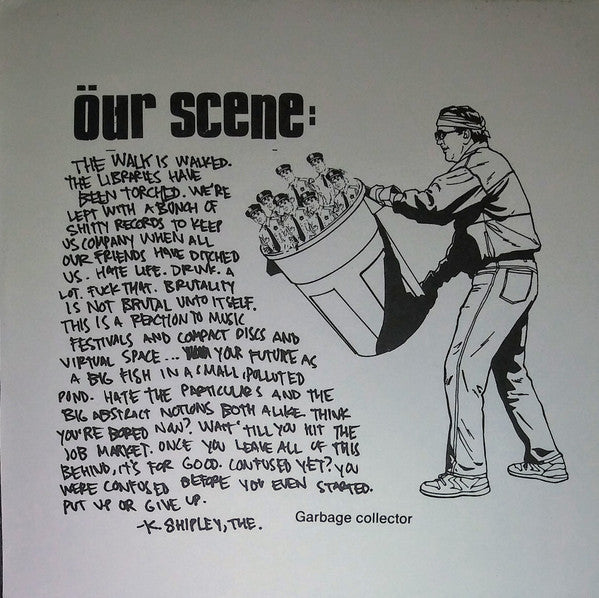 öur scene:
THE WALK IS WALKED.
THE LIBRARIES HAVE
BEEN TORCHED. WE'RE
LEFT WITH A BUNCH OF
SHITTY RECORDS TO KEEP
US COMPANY WHEN ALL
OUR FRIENDS HAVE DITCHED
US. HATE LIFE. DRINK. A
LOT. FUCK THAT. BRUTALITY
IS NOT BRUTAL UNTO ITSELF.
THIS IS A REACTION TO MUSIC
FESTIVALS AND COMPACT DISCS AND
VIRTUAL SPACE... YOUR FUTURE AS
A BIG FISH IN A SMALL, POLLUTED
POND. HATE THE PARTICULARS AND THE
BIG ABSTRACT NOTIONS BOTH ALIKE. THINK
YOU'RE BORED NOW? WAIT 'TILL YOU HIT THE
JOB MARKET. ONCE YOU LEAVE ALL OF THIS
BEHIND, IT'S FOR GOOD. CONFUSED YET? YOU
WERE CONFUSED BEFORE YOU EVEN STARTED.
PUT UP OR GIVE UP.
-K SHIPLEY, THE.
Garbage collector